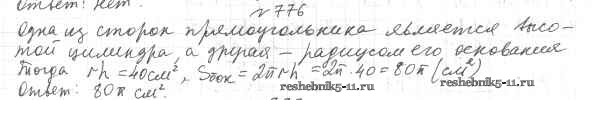 Ответ: нет.
№ 776
Одна из сторон прямоугольника является высо-
той цилиндра, а другая – радиусом его основания
Тогда rh = 40см², Sбок = 2πrh = 2π·40 = 80π (см²)
Ответ: 80π см².
reshebnik5-11.ru
reshebnik5-11.ru